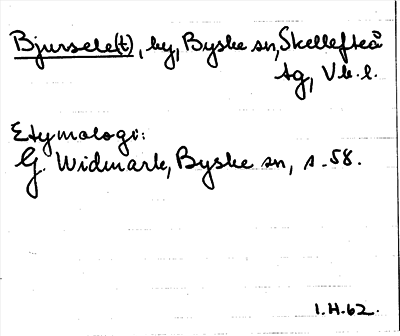 Bjursele(t), by, Byske sn, Skellefteå
tg, Vb. l.
Etymologi:
G. Widmark, Byske sn, s. 58.
1.H.62.